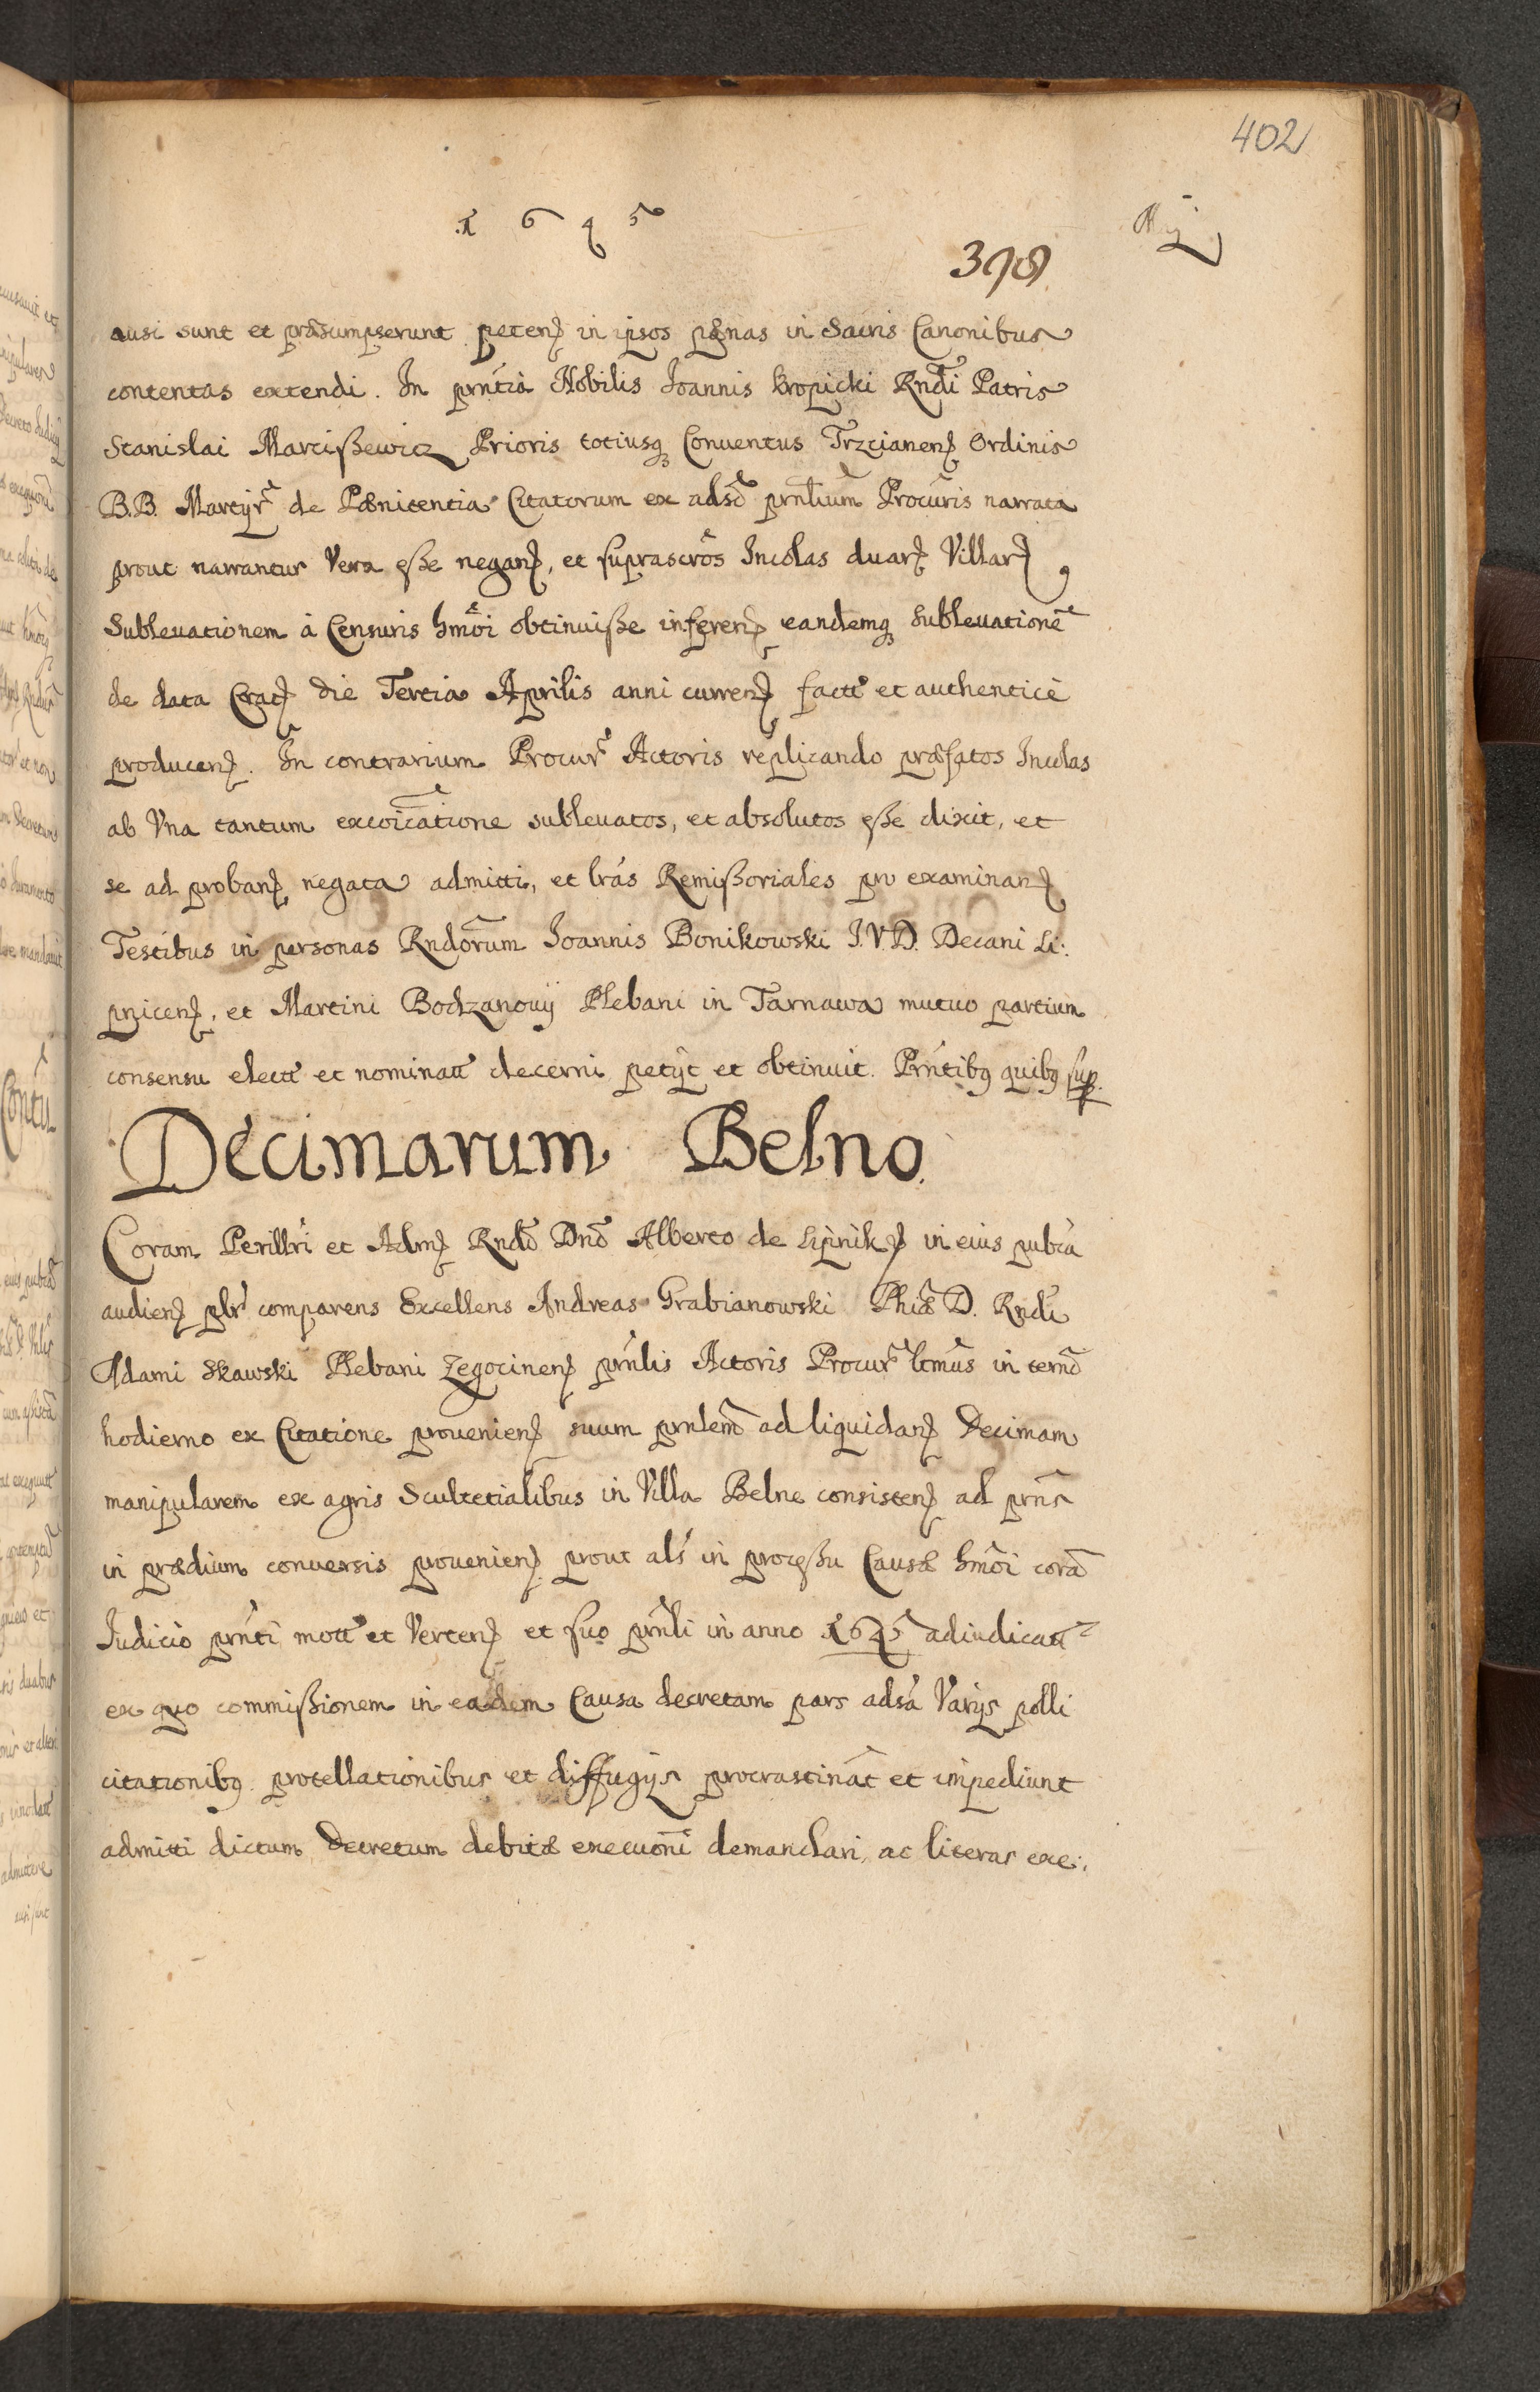 402
1 6 4 5
398
ausi sunt et præsumpserunt petenȝ in ipsos pœnas in Sacris Canonibus
contentas extendi. In prn̄tia Nobilis Joannis kropicki Rndi Patris
Stanislai Marcißewicz Prioris totiusqȝ Conuentus Trzcianenȝ Ordinis
B.B. Martyr̃ de Pœnitentia Citatorum ex adsõ prñlium Procuris narrata
prout narrantur Vera eße neganȝ, et suprascrõs Incolas duarȝ Villarȝ
Subleuationem à Censuris hmõi obtinuiße inferenȝ eandemqȝ subleuationẽ
de data Cratȝ die Tertia Aprilis anni currenȝ factt et authenticè
producenȝ. In contrarium Procur̃ Actoris replicando præfatos Incolas
ab Vna tantum excoĩcatione subleuatos, et absolutos eße dixit, et
se ad probanȝ negata admitti, et lrás Remißoriales pro examinanȝ
Testibus in personas Rndorum Joannis Bonikowski J.V.D. Decani Li:
pnicenȝ, et Martini Bodzanouij Plebani in Tarnawa mutuo partium
consensu electt et nominatt decerni petijt et obtinuit. Prńtibȝ quibȝ sup.
Decimarum Belno.
Coram Perillri et Admȝ Rndõ Dnõ Alberto de Lipnikȝ in eius pubca
audienȝ plr comparens Excellens Andreas Grabianowski Phiæ D. Rndi
Adami Skawski Plebani Zegocinenȝ prńlis Actoris Procur̃ ltmus in termõ
hodierno ex Citatione prouenienȝ suum prnlem ad liquidanȝ Decimam
manipularem ex agris Scultetialibus in Villa Belne consistenȝ ad prns
in prædium conuersis prouenienȝ prout alś in proceßu Causæ hmõi corã
Iudicio prńti mott et Vertenȝ et suo prńli in anno 1645 adiudicatt
ex quo commißionem in eadem Causa decretam pars adsa Varijs polli
citationibȝ protellationibus et diffugijs procrastinãt et impediunt
admitti dictum Decretum debitæ execuoni demandari, ac literas exe: